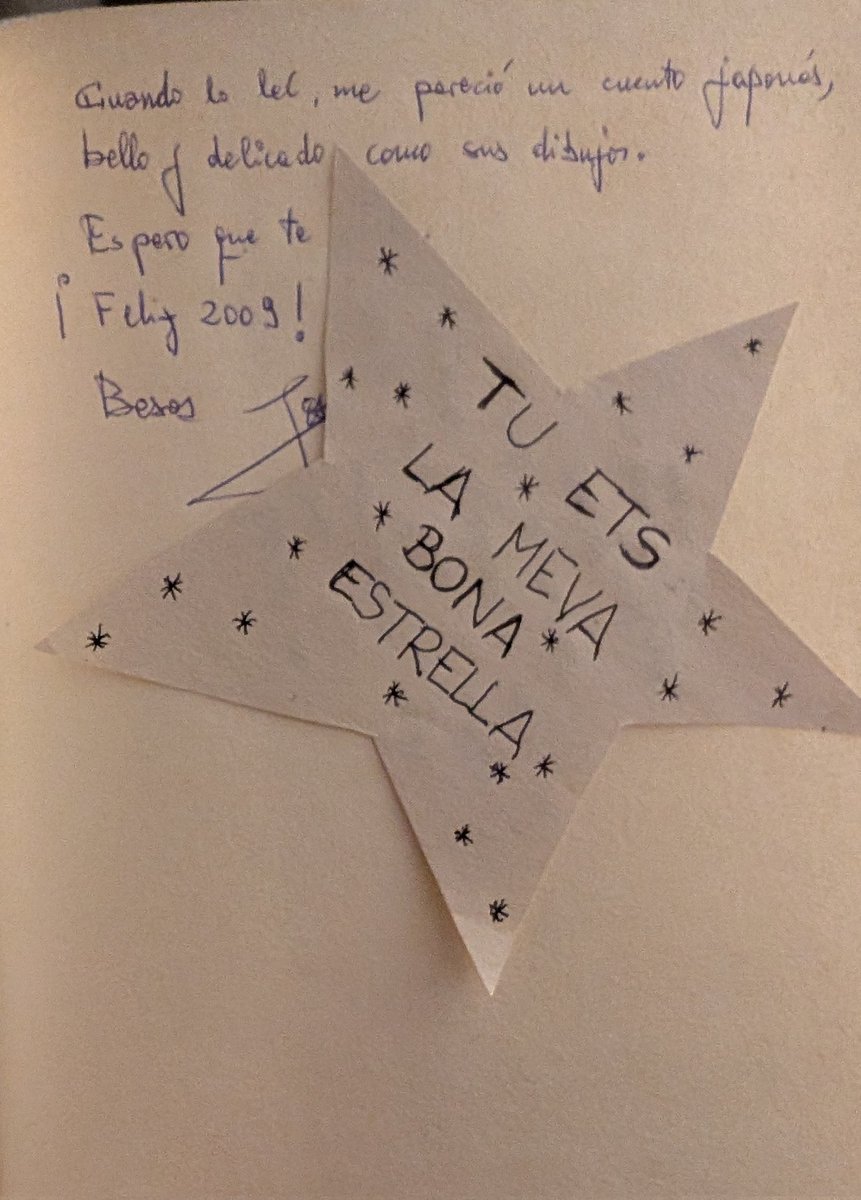 Cuando lo leí, me pareció un cuento japonés,
bello y delicado como sus dibujos.
Espero que te
¡Feliz 2009!
Besos
TU ETS
LA MEVA
BONA
ESTRELLA